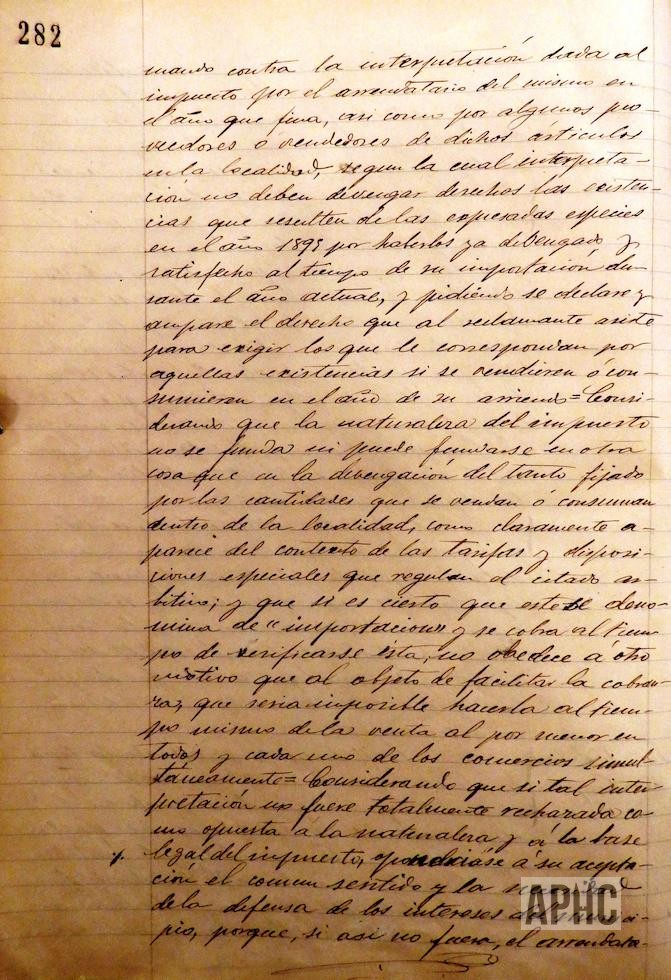 282
mando contra la interpretación dada al
impuesto por el arrendatario del mismo en
el año que fina, asi como por algunos pro-
veedores ó vendedores de dichos articulos
en la localidad, segun la cual interpreta-
ción no deben devengar derechos las existen-
cias que resulten de las expresadas especies
en el año 1895 por haberlos ya devengado y
satisfecho al tiempo de su importación du-
rante el año actual, y pidiendo se declare y
ampare el derecho que al reclamante asiste
para exigir los que le correspondan por
aquellas existencias si se vendieren ó con-
sumieren en el año de su arriendo = Consi-
derando que la naturaleza del impuesto
no se funda ni puede fundarse en otra
cosa que en la devengación del tanto fijado
por las cantidades que se vendan ó consuman
dentro de la localidad, como claramente a-
parece del contexto de las tarifas y disposi-
ciones especiales que regulan el citado ar-
bitrio; y que si es cierto que este se deno-
mina de "importacion" y se cobra al tiem-
po de verificarse ésta, no obedece á otro
motivo que al objeto de facilitar la cobran-
za, que seria imposible hacerla al tiem-
po mismo de la venta al por menor en
todos y cada uno de los comercios simul-
táneamente = Considerando que si tal inter-
pretación no fuere totalmente rechazada co-
mo opuesta a la naturaleza y á la base
legal del impuesto, opondriase á su acepta-
ción el comun sentido y la
de la defensa de los intereses del munici-
pio, porque, si asi no fuera, el arrendata-
APHC